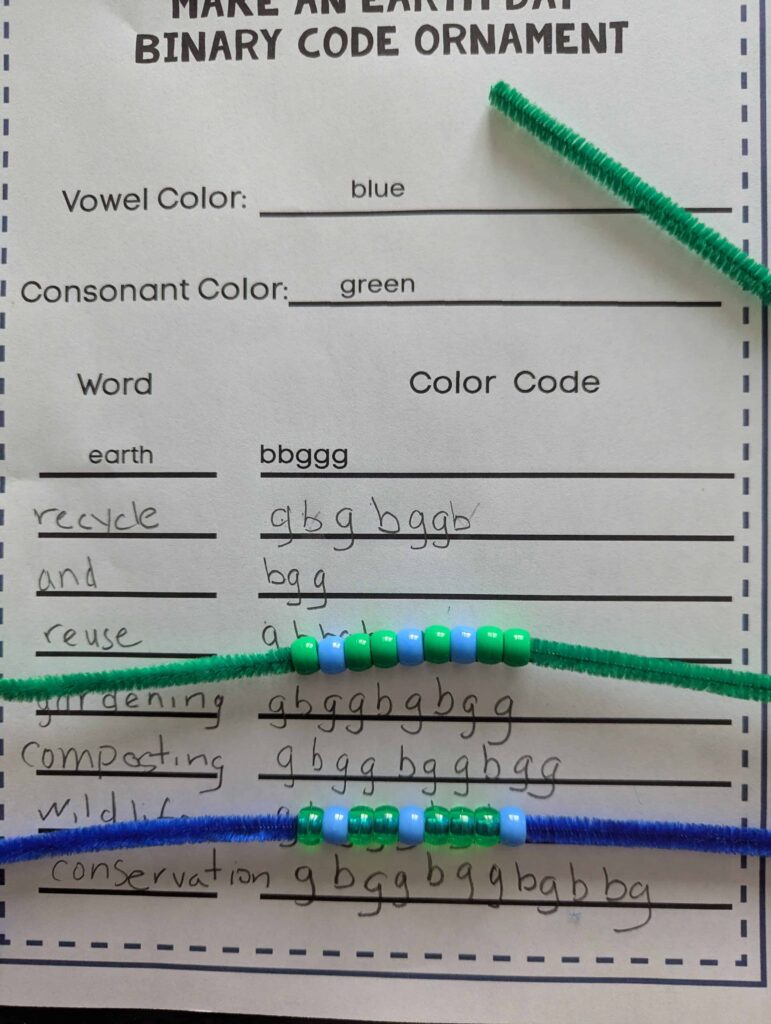 MAKE AN EARTH DAY
BINARY CODE ORNAMENT
Vowel Color: blue
Consonant Color: green
Word Color Code
earth bbggg
recycle gbgbggb
and bgg
reuse
gardening gbggbgbgg
composting gbggbggbgg
wildlife
conservation gbggbggbgbbg